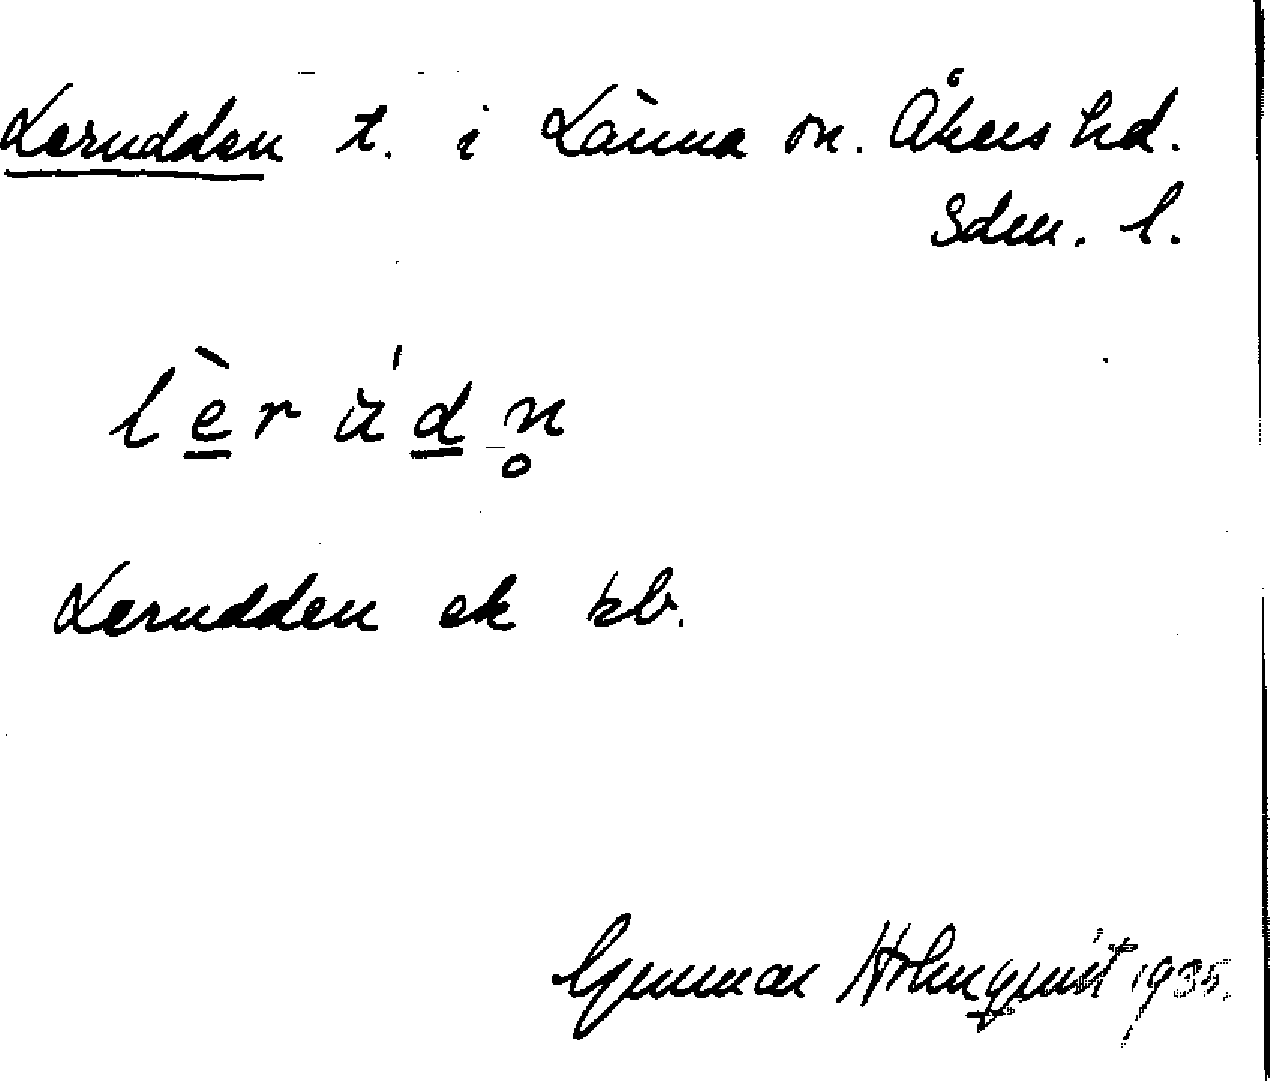 Lerudden t. i Länna sn. Åkers hd.
Sdm. l.
l è̱ r ù́ ḏ n̥
Lerudden ek kb.
Gunnar Holmquist 1935.